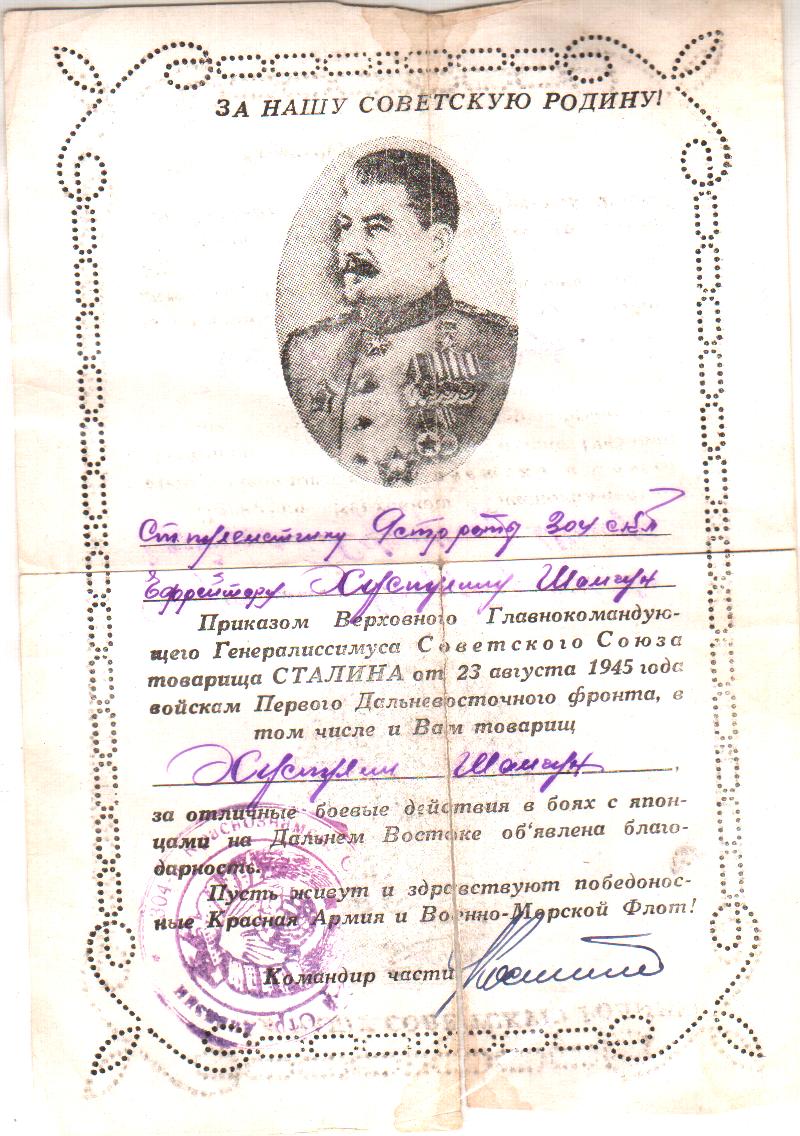 ЗА НАШУ СОВЕТСКУЮ РОДИНУ!
Ст. пулеметчику роты
Ефрейтору Хуспулину
Приказом Верховного Главнокомандую-
щего Генералиссимуса Советского Союза
товарища СТАЛИНА от 23 августа 1945 года
войскам Первого Дальневосточного фронта, в
том числе и Вам товарищ
Хуспулин
за отличные боевые действия в боях с япон-
цами на Дальнем Востоке об'явлена благо-
дарность.
Пусть живут и здравствуют победонос-
ные Красная Армия и Военно-Морской Флот!
Командир части
304 Краснознам
Стр. дивизии